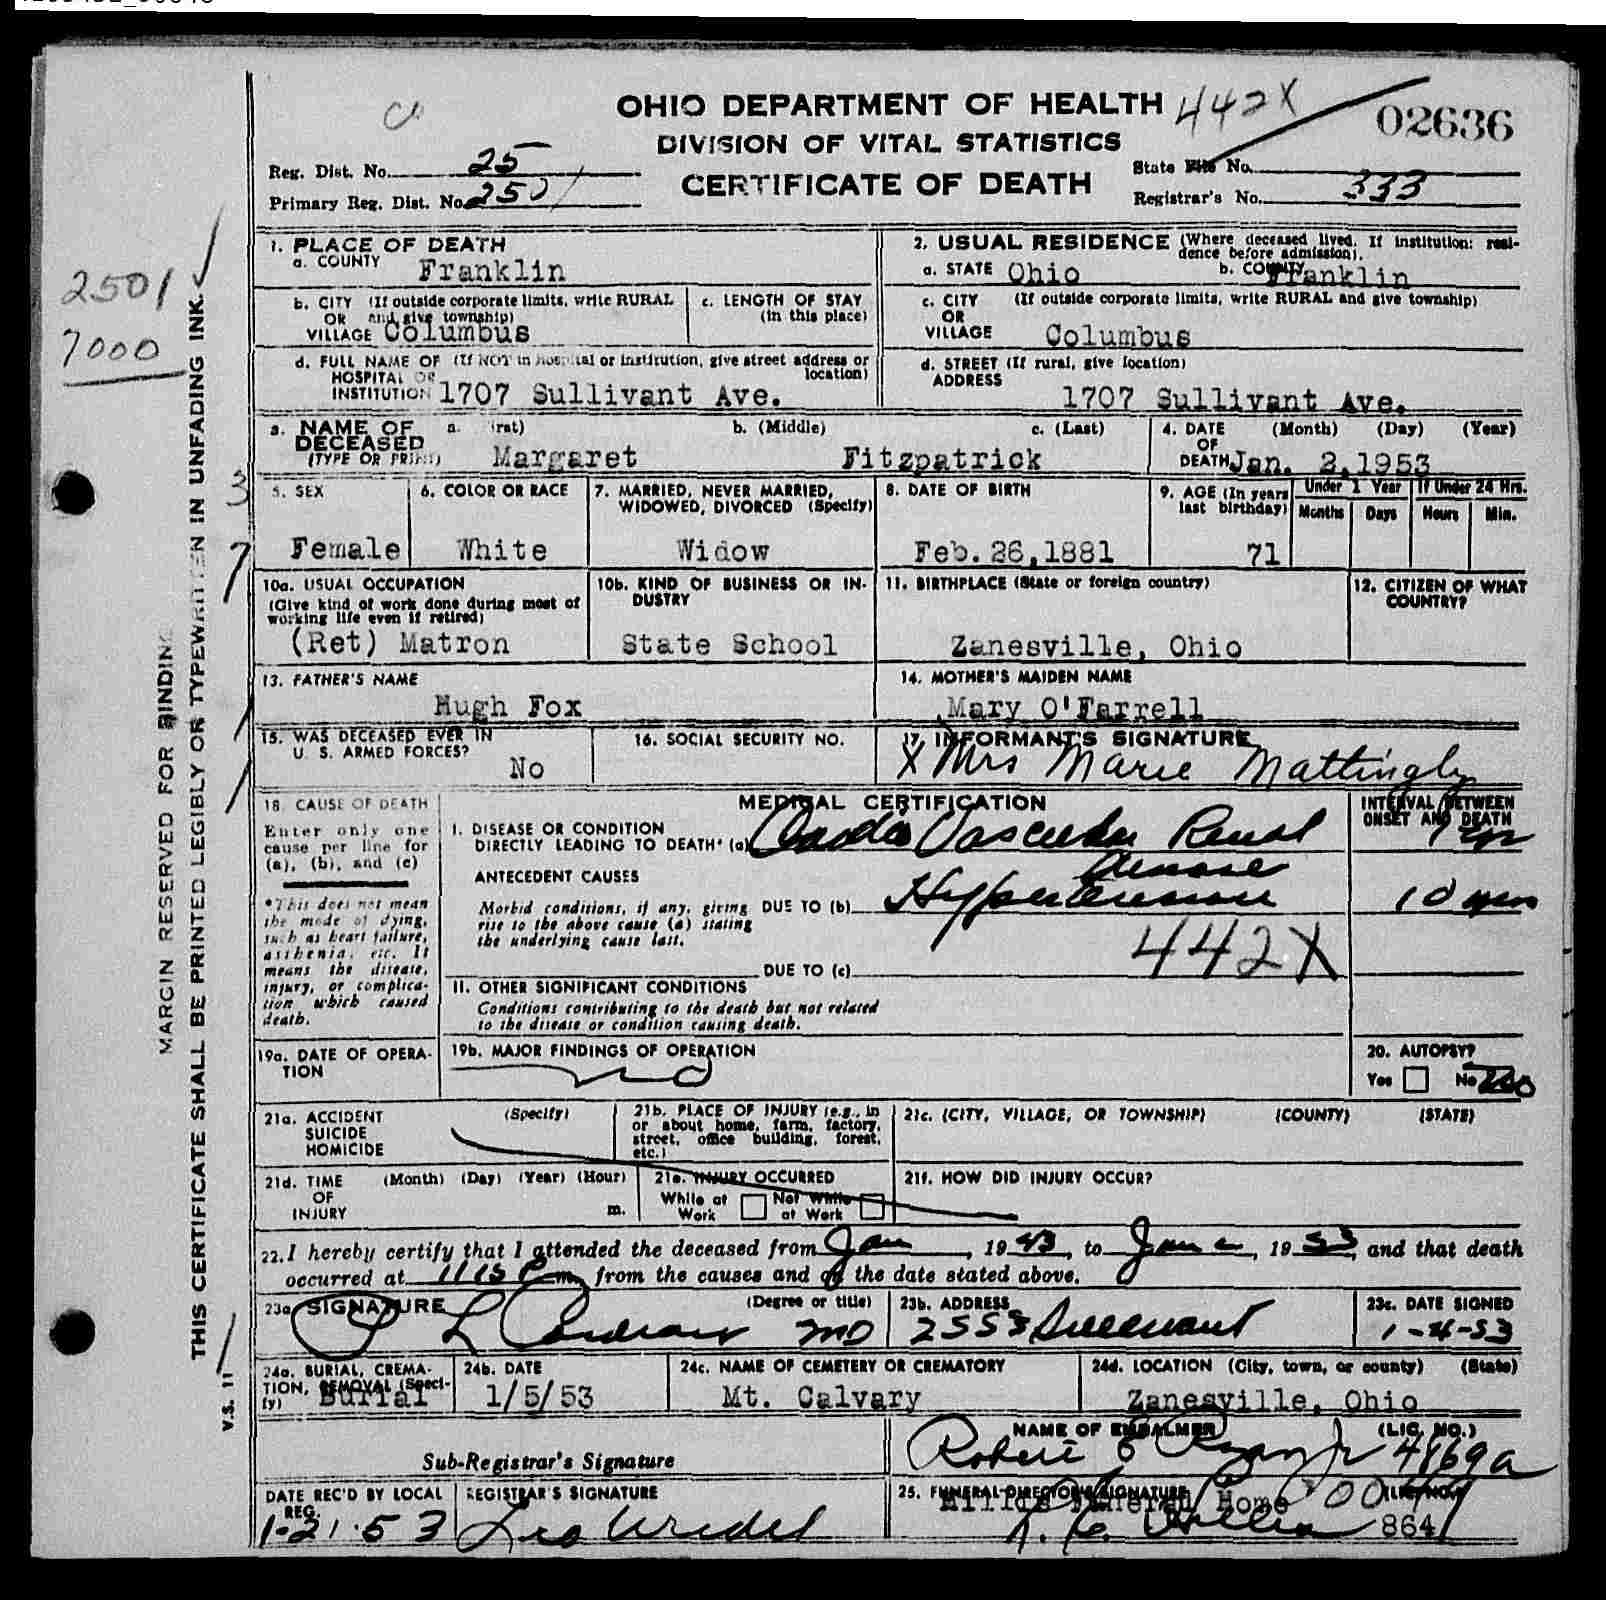 OHIO DEPARTMENT OF HEALTH
442X
02636
DIVISION OF VITAL STATISTICS
CERTIFICATE OF DEATH
Reg. Dist. No. 25
Primary Reg. Dist. No. 2501
State File No.
Registrar's No. 333
2501
7000
MARGIN RESERVED FOR BINDING
THIS CERTIFICATE SHALL BE PRINTED LEGIBLY OR TYPEWRITTEN IN UNFADING INK.
V.S. 11
1. PLACE OF DEATH
a. COUNTY Franklin
b. CITY (If outside corporate limits, write RURAL
OR and give township)
VILLAGE Columbus
c. LENGTH OF STAY
(in this place)
d. FULL NAME OF (If NOT in hospital or institution, give street address or
HOSPITAL OR location)
INSTITUTION 1707 Sullivant Ave.
2. USUAL RESIDENCE (Where deceased lived. If institution: resi-
dence before admission).
a. STATE Ohio b. COUNTY Franklin
c. CITY (If outside corporate limits, write RURAL and give township)
OR
VILLAGE Columbus
d. STREET (If rural, give location)
ADDRESS
1707 Sullivant Ave.
3. NAME OF a. (First) b. (Middle) c. (Last)
DECEASED
(TYPE OR PRINT) Margaret Fitzpatrick
4. DATE (Month) (Day) (Year)
OF
DEATH Jan. 2,1953
5. SEX
Female
6. COLOR OR RACE
White
7. MARRIED, NEVER MARRIED,
WIDOWED, DIVORCED (Specify)
Widow
8. DATE OF BIRTH
Feb.26,1881
9. AGE (In years
last birthday)
71
Under 1 Year
Months Days
If Under 24 Hrs.
Hours Min.
10a. USUAL OCCUPATION
(Give kind of work done during most of
working life even if retired)
(Ret) Matron
10b. KIND OF BUSINESS OR IN-
DUSTRY
State School
11. BIRTHPLACE (State or foreign country)
Zanesville, Ohio
12. CITIZEN OF WHAT
COUNTRY?
13. FATHER'S NAME
Hugh Fox
14. MOTHER'S MAIDEN NAME
Mary O'Farrell
15. WAS DECEASED EVER IN
U. S. ARMED FORCES?
No
16. SOCIAL SECURITY NO.
17. INFORMANT'S SIGNATURE
X Mrs Marie Mattingly
18. CAUSE OF DEATH
Enter only one
cause per line for
(a), (b), and (c)
*This does not mean
the mode of dying,
such as heart failure,
asthenia, etc. It
means the disease,
injury, or complica-
tion which caused
death.
MEDICAL CERTIFICATION
INTERVAL BETWEEN
ONSET AND DEATH
I. DISEASE OR CONDITION
DIRECTLY LEADING TO DEATH* (a) Cardio Vascular Renal
Disease
1 yr
ANTECEDENT CAUSES
Morbid conditions, if any, giving DUE TO (b) Hypertension
rise to the above cause (a) stating
the underlying cause last.
10 yrs
442X
DUE TO (c)
II. OTHER SIGNIFICANT CONDITIONS
Conditions contributing to the death but not related
to the disease or condition causing death.
19a. DATE OF OPERA-
TION
19b. MAJOR FINDINGS OF OPERATION
no
20. AUTOPSY?
Yes No
21a. ACCIDENT (Specify)
SUICIDE
HOMICIDE
21b. PLACE OF INJURY (e.g., in
or about home, farm, factory,
street, office building, forest,
etc.)
21c. (CITY, VILLAGE, OR TOWNSHIP) (COUNTY) (STATE)
21d. TIME (Month) (Day) (Year) (Hour)
OF
INJURY m.
21e. INJURY OCCURRED
While at Not While
Work at Work
21f. HOW DID INJURY OCCUR?
22. I hereby certify that I attended the deceased from Jan, 1943, to Jan 2, 1953, and that death
occurred at 1115 P m., from the causes and on the date stated above.
23a. SIGNATURE (Degree or title)
MD
23b. ADDRESS
2558 Sullivant
23c. DATE SIGNED
1-4-53
24a. BURIAL, CREMA-
TION, REMOVAL (Speci-
fy) Burial
24b. DATE
1/5/53
24c. NAME OF CEMETERY OR CREMATORY
Mt. Calvary
24d. LOCATION (City, town, or county) (State)
Zanesville, Ohio
Sub-Registrar's Signature
NAME OF EMBALMER (LIC. NO.)
Robert E Ryan Jr 4169a
DATE REC'D BY LOCAL
REG.
1-21-53
REGISTRAR'S SIGNATURE
25. FUNERAL DIRECTOR'S SIGNATURE (LIC. NO.)
Funeral Home
864